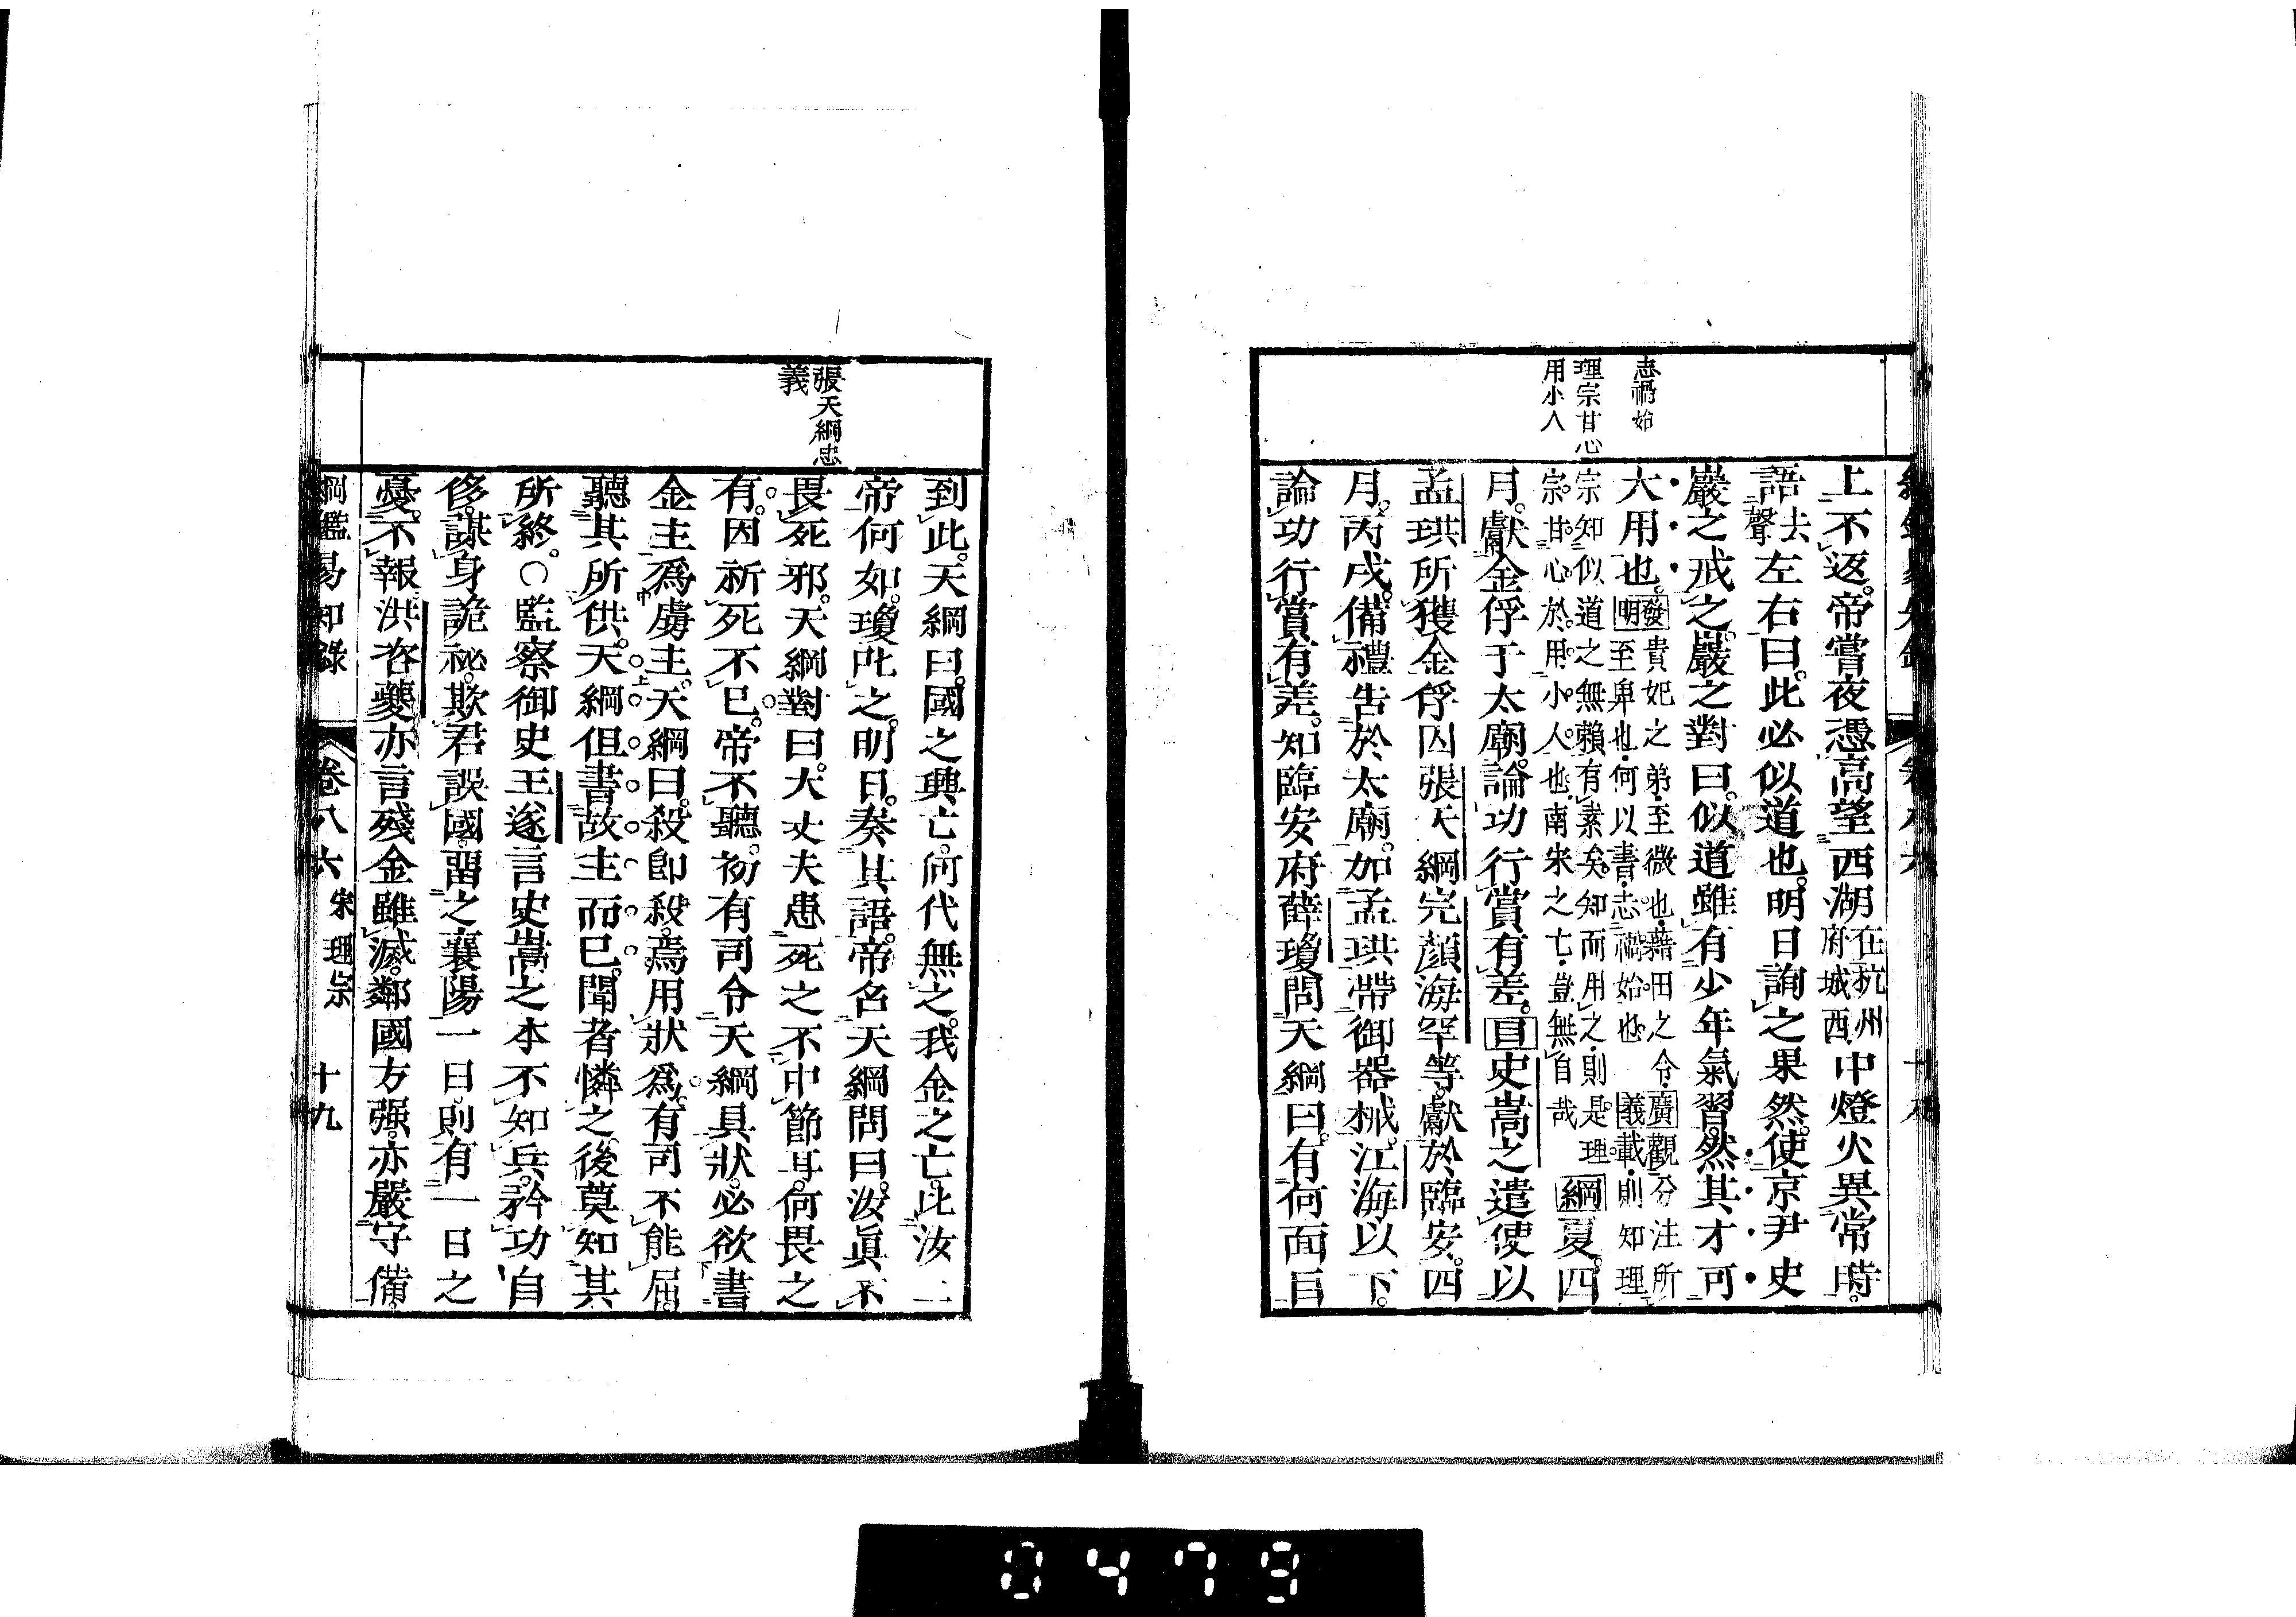 志禍始
理宗甘心
用小人
上不返。帝嘗夜憑高望西湖在杭州府城西中燈火異常時。
語去聲左右曰。此必似道也。明日詢之果然。使京尹史
巖之戒之。巖之對曰。似道雖有少年氣習。然其才可
大用也。發明貴妃之弟。至微也。藉田之令。至卑也。何以書。志禍始也。廣義觀分注所載。則知理
宗知似道之無賴有素矣。知而用之。則是理宗。甘心於用小人也。南宋之亡。豈無自哉 綱夏。四
月。獻金俘于太廟。論功行賞有差。目史嵩之遣使以
孟珙所獲金俘囚張天綱完顏海罕等。獻於臨安。四
月。丙戌。備禮告於太廟。加孟珙帶御器械。江海以下。
論功行賞有差。知臨安府薛瓊問天綱曰。有何面目
張天綱忠
義
到此。天綱曰。國之興亡。何代無之。我金之亡。比汝二
帝何如。瓊叱之。明日。奏其語。帝召天綱問曰。汝眞不
畏死邪。天綱對曰。大丈夫患死之不中節耳。何畏之
有。因祈死不已。帝不聽。初有司令天綱具狀。必欲書
金主爲虜主。天綱曰。殺即殺。焉用狀爲。有司不能屈。
聽其所供。天綱但書故主而已。聞者憐之。後莫知其
所終。○監察御史王遂言史嵩之本不知兵。矜功自
侈。謀身詭祕。欺君誤國。留之襄陽一日。則有一日之
憂。不報。洪咨夔亦言殘金雖滅。鄰國方强。亦嚴守備。
綱鑑易知錄 卷八六 宋理宗 十九
0479